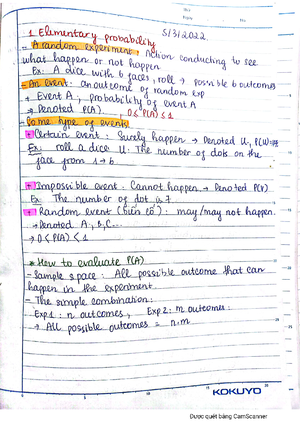 5/3/2022.
1. Elementary probability
- A random experiment: Action conducting to see
what happen or not happen
Ex: A dice with 6 faces, roll → possible 6 outcomes
- An event: an outcome of random exp
+ Event A, probability of event A
→ Denoted P(A). 0 ≤ P(A) ≤ 1
- Some type of events
+ Certain event: Surely happen → Denoted U, P(U)=
Ex: roll a dice U: The number of dots on the
face from 1 → 6
+ Impossible event: Cannot happen → Denoted P(V)
Ex: The number of dot is 7
+ Random event (biến cố): may/may not happen.
→ Denoted A, B, C...
→ 0 < P(A) < 1
* How to evaluate P(A)
- Sample space: All possible outcome that can
happen in the experiment
- The simple combination:
Exp 1: n outcomes, Exp 2: m outcomes.
→ All possible outcomes = n.m
KOKUYO
Được quét bằng CamScanner